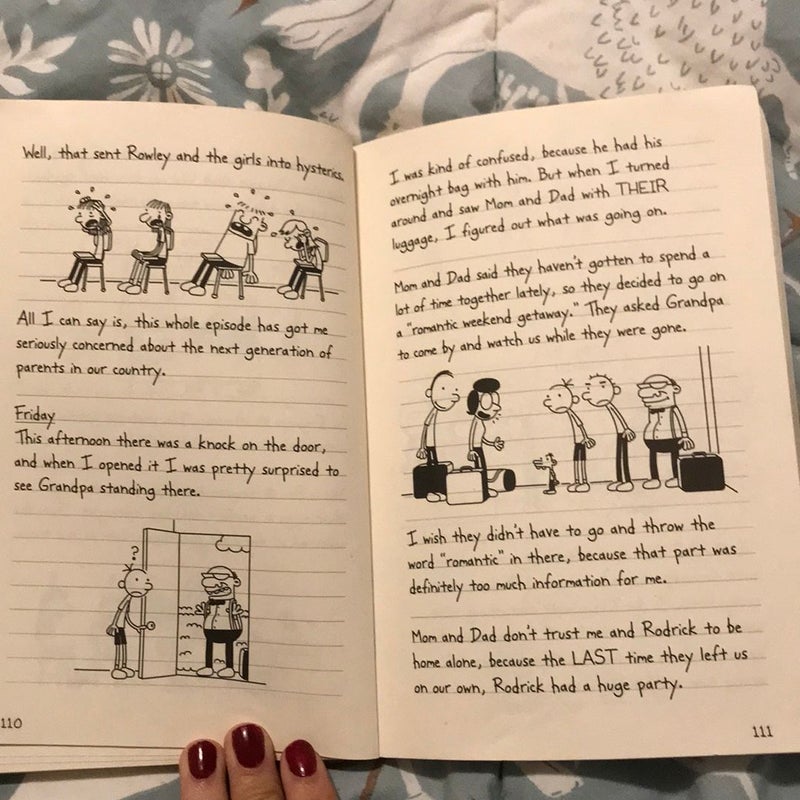 Well, that sent Rowley and the girls into hysterics.
All I can say is, this whole episode has got me
seriously concerned about the next generation of
parents in our country.
Friday
This afternoon there was a knock on the door,
and when I opened it I was pretty surprised to
see Grandpa standing there.
?
110
I was kind of confused, because he had his
overnight bag with him. But when I turned
around and saw Mom and Dad with THEIR
luggage, I figured out what was going on.
Mom and Dad said they haven't gotten to spend a
lot of time together lately, so they decided to go on
a "romantic weekend getaway." They asked Grandpa
to come by and watch us while they were gone.
I wish they didn't have to go and throw the
word "romantic" in there, because that part was
definitely too much information for me.
Mom and Dad don't trust me and Rodrick to be
home alone, because the LAST time they left us
on our own, Rodrick had a huge party.
111